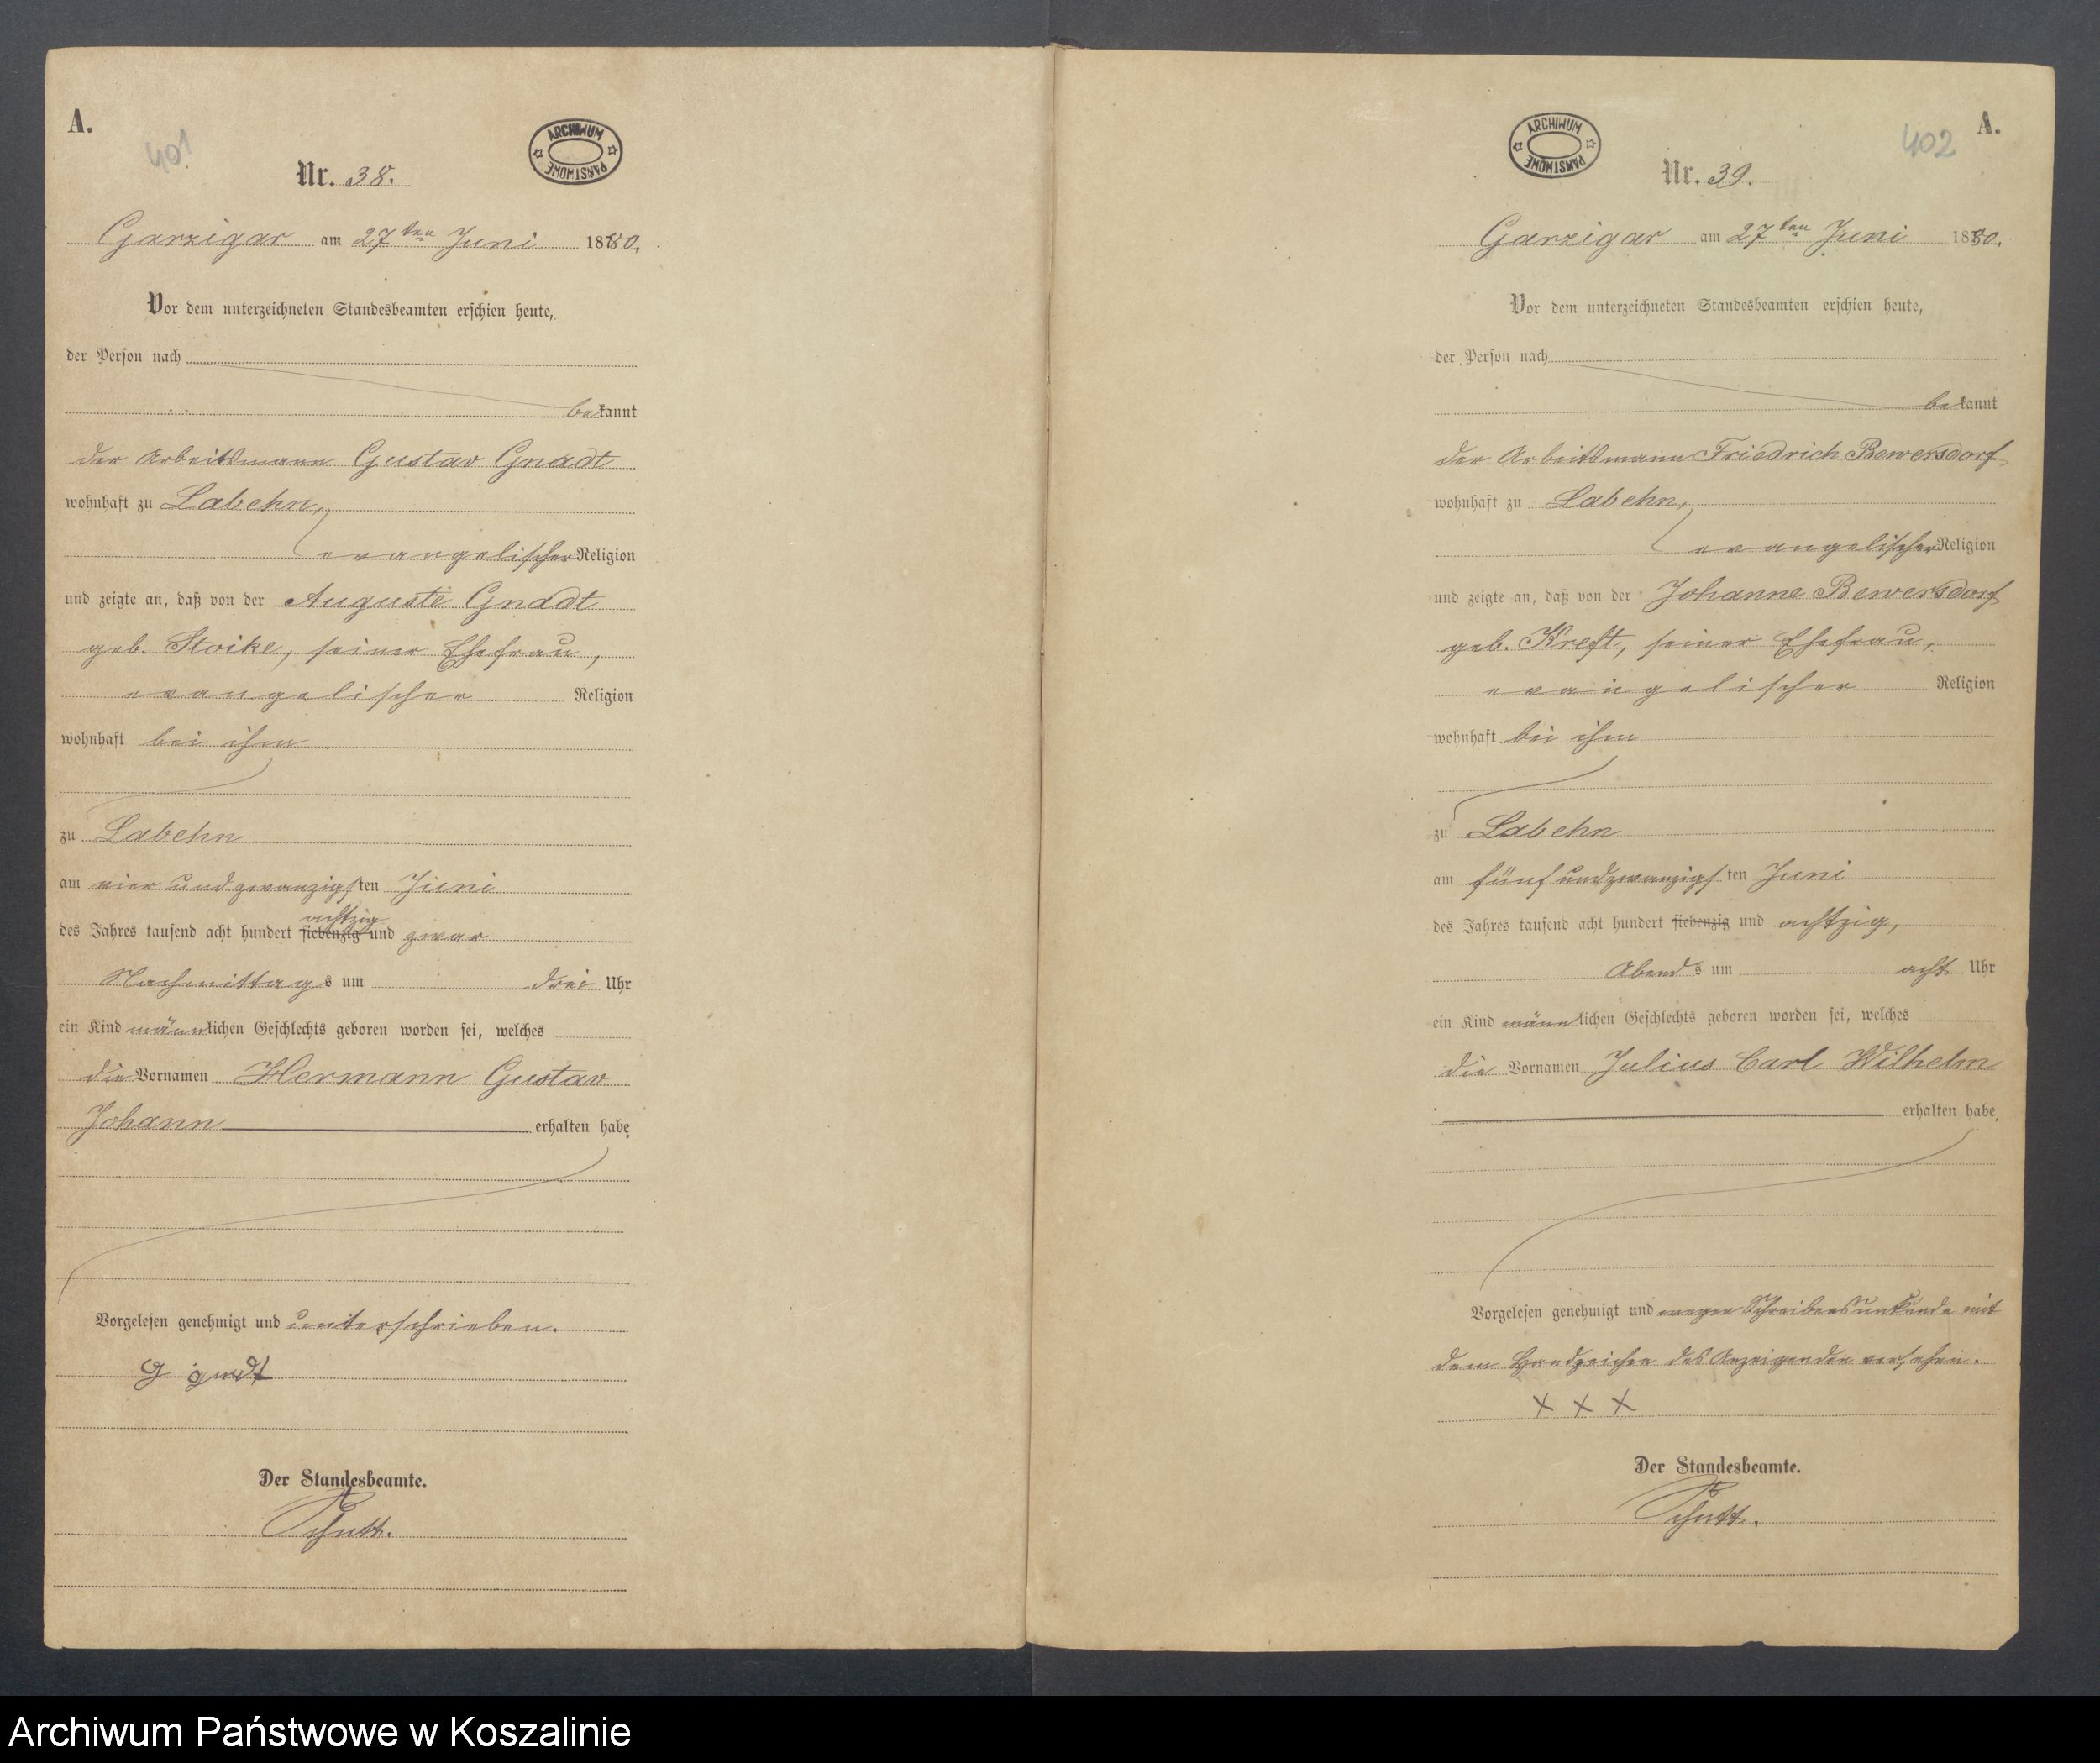 A.
401
ARCHIWUM PAŃSTWOWE
Nr. 38.
Garzigar am 27ten Juni 1880.
Vor dem unterzeichneten Standesbeamten erschien heute,
der Person nach
bekannt
der Arbeitsmann Gustav Gnadt
wohnhaft zu Labehn,
evangelischer Religion
und zeigte an, daß von der Auguste Gnadt
geb. Stoike, seiner Ehefrau,
evangelischer Religion
wohnhaft bei ihm
zu Labehn
am vier und zwanzigsten Juni
achtzig
des Jahres tausend acht hundert siebenzig und zwar
Nachmittags um drei Uhr
ein Kind männlichen Geschlechts geboren worden sei, welches
die Vornamen Hermann Gustav
Johann erhalten habe.
Vorgelesen genehmigt und unterschrieben.
G gnadt
Der Standesbeamte.
Schutt.
A.
402
ARCHIWUM PAŃSTWOWE
Nr. 39.
Garzigar am 27ten Juni 1880.
Vor dem unterzeichneten Standesbeamten erschien heute,
der Person nach
bekannt
der Arbeitsmann Friedrich Bewersdorf
wohnhaft zu Labehn,
evangelischer Religion
und zeigte an, daß von der Johanne Bewersdorf
geb. Kreft, seiner Ehefrau,
evangelischer Religion
wohnhaft bei ihm
zu Labehn
am fünf und zwanzigsten Juni
des Jahres tausend acht hundert siebenzig und achtzig,
Abends um acht Uhr
ein Kind männlichen Geschlechts geboren worden sei, welches
die Vornamen Julius Carl Wilhelm
erhalten habe.
Vorgelesen genehmigt und wegen Schreibensunkunde mit
dem Handzeichen des Anzeigenden versehen.
X X X
Der Standesbeamte.
Schutt.
Archiwum Państwowe w Koszalinie